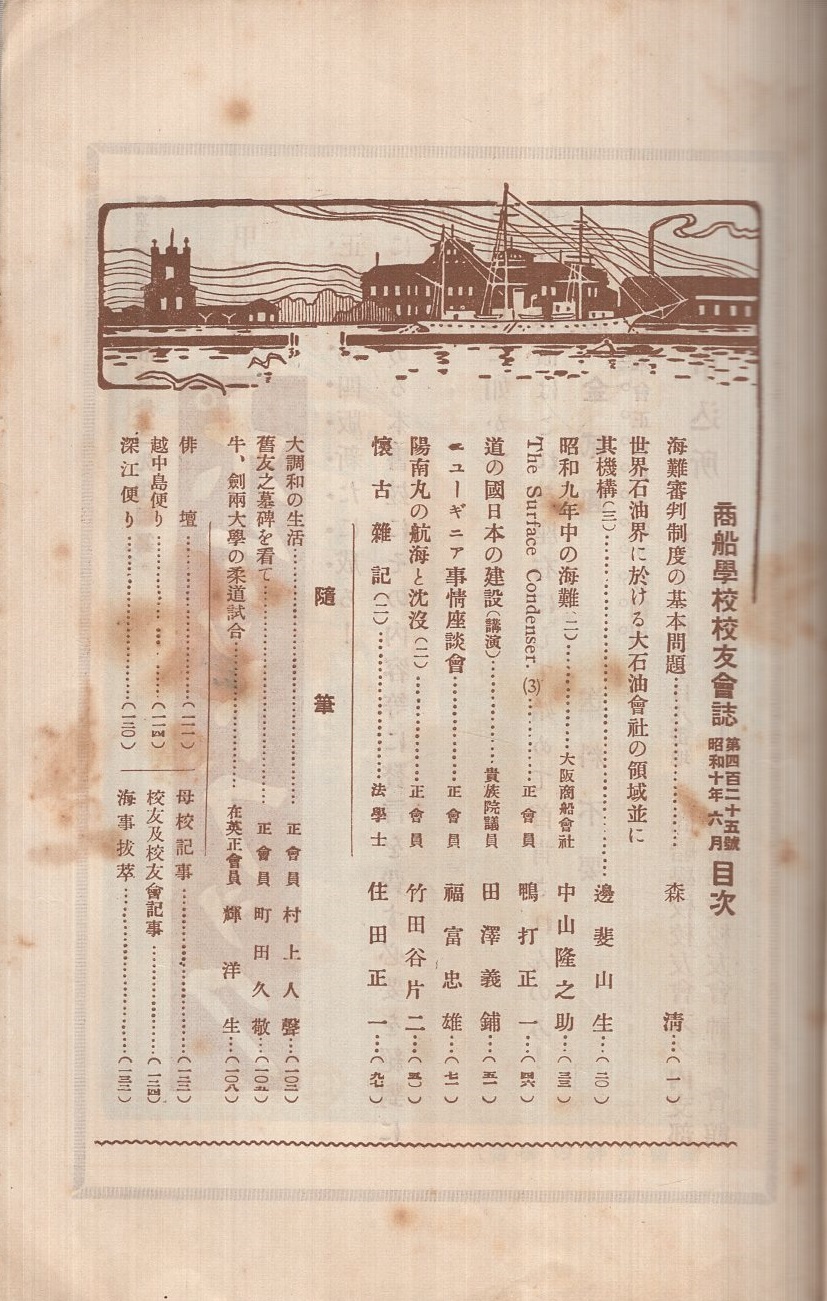 商船學校校友會誌 第四百二十五號 昭和十年六月 目次
海難審判制度の基本問題……森清…(一)
世界石油界に於ける大石油會社の領域並に
其機構(三)……邊斐山生…(二〇)
昭和九年中の海難(二)……大阪商船會社 中山隆之助…(三三)
The Surface Condenser. (3)……正會員 鴨打正一…(四六)
道の國日本の建設(講演)……貴族院議員 田澤義鋪…(五一)
ニューギニア事情座談會……正會員 福富忠雄…(七一)
陽南丸の航海と沈沒(二)……正會員 竹田谷片二…
懷古雜記(二)……法學士 住田正一…(九七)
隨筆
大調和の生活……正會員 村上人聲…(一〇二)
舊友之墓碑を看て……正會員 町田久敬…(一〇五)
牛、劍兩大學の柔道試合……在英正會員 輝洋生…(一〇八)
俳壇……(一一一)
越中島便り……(一一四)
深江便り……(一二〇)
母校記事……(一二二)
校友及校友會記事……(一二四)
海事拔萃……(一三二)